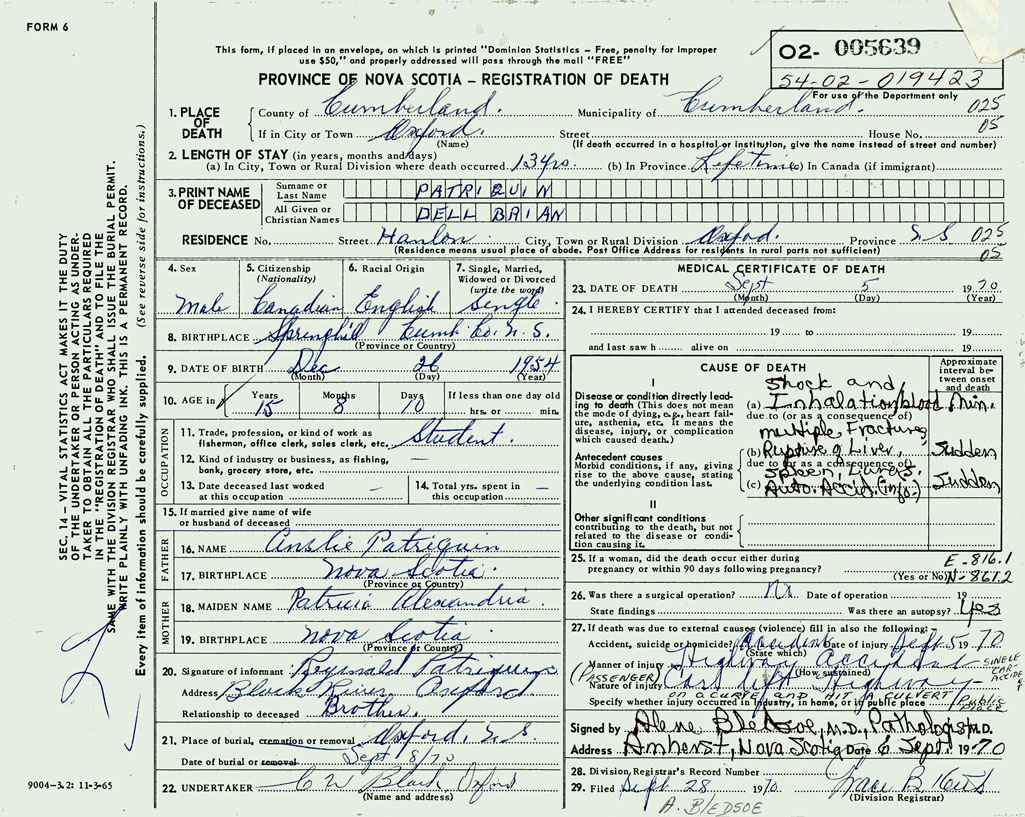 FORM 6
This form, if placed in an envelope, on which is printed "Dominion Statistics – Free, penalty for improper
use $50," and properly addressed will pass through the mail "FREE"
PROVINCE OF NOVA SCOTIA – REGISTRATION OF DEATH
O2- 005639
54-02-019423
For use of the Department only
1. PLACE OF DEATH
County of Cumberland. Municipality of Cumberland. 025
If in City or Town Oxford. Street House No. 05
(Name) (If death occurred in a hospital or institution, give the name instead of street and number)
2. LENGTH OF STAY (in years, months and days)
(a) In City, Town or Rural Division where death occurred 13 yrs. (b) In Province Lifetime (c) In Canada (if immigrant)
3. PRINT NAME OF DECEASED
Surname or Last Name PATRIQUIN
All Given or Christian Names DELL BRIAN
RESIDENCE No. Street Hanlon City, Town or Rural Division Oxford. Province N.S 025
(Residence means usual place of abode. Post Office Address for residents in rural parts not sufficient) 05
4. Sex Male
5. Citizenship (Nationality) Canadian
6. Racial Origin English
7. Single, Married, Widowed or Divorced (write the word) Single
8. BIRTHPLACE Springhill Cumb. Co. N. S.
(Province or Country)
9. DATE OF BIRTH Dec 26 1954
(Month) (Day) (Year)
10. AGE in Years 15 Months 8 Days 10 If less than one day old
hrs. or min.
OCCUPATION
11. Trade, profession, or kind of work as
fisherman, office clerk, sales clerk, etc. Student.
12. Kind of industry or business, as fishing,
bank, grocery store, etc. –
13. Date deceased last worked
at this occupation –
14. Total yrs. spent in
this occupation –
15. If married give name of wife
or husband of deceased
FATHER
16. NAME Anslie Patriquin
17. BIRTHPLACE Nova Scotia
(Province or Country)
MOTHER
18. MAIDEN NAME Patricia Alexandria.
19. BIRTHPLACE Nova Scotia
(Province or Country)
20. Signature of informant Reynald Patriquin
Address Black River, Oxford
Relationship to deceased Brother.
21. Place of burial, cremation or removal Oxford, N.S.
Date of burial or removal Sept 8/70
22. UNDERTAKER C W Black Oxford
(Name and address)
MEDICAL CERTIFICATE OF DEATH
23. DATE OF DEATH Sept 5 1970
(Month) (Day) (Year)
24. I HEREBY CERTIFY that I attended deceased from:
19 to 19
and last saw h alive on 19
CAUSE OF DEATH
Approximate interval between onset and death
I
Disease or condition directly leading to death (This does not mean the mode of dying, e.g., heart failure, asthenia, etc. It means the disease, injury, or complication which caused death.)
Shock and
(a) Inhalation blood Min.
due to (or as a consequence of)
multiple Fracture
Antecedent causes
Morbid conditions, if any, giving rise to the above cause, stating the underlying condition last.
(b) Rupture of Liver, Sudden
due to (or as a consequence of)
Spleen, Lungs.
(c) Auto. Accid. (info.) Sudden
II
Other significant conditions
contributing to the death, but not related to the disease or condition causing it.
25. If a woman, did the death occur either during E-816.1
pregnancy or within 90 days following pregnancy? (Yes or No) N-861.2
26. Was there a surgical operation? No Date of operation 19
State findings Was there an autopsy? Yes
27. If death was due to external causes (violence) fill in also the following:–
Accident, suicide or homicide? Accident Date of injury Sept. 5 1970
(State which)
Manner of injury Highway Accident SINGLE CAR ACCIDENT
(PASSENGER) (How sustained)
Nature of injury Car left Highway –
ON A CURVE AND HIT A CULVERT
Specify whether injury occurred in industry, in home, or in public place Public
Signed by Alene Bledsoe, M.D., Pathologist M.D.
Address Amherst, Nova Scotia Date 6 Sept. 1970
28. Division Registrar's Record Number
29. Filed Sept 28 1970.
(Division Registrar)
A. BLEDSOE
SEC. 14 – VITAL STATISTICS ACT MAKES IT THE DUTY
OF THE UNDERTAKER OR PERSON ACTING AS UNDER-
TAKER TO OBTAIN ALL THE PARTICULARS REQUIRED
IN THE "REGISTRATION OF DEATH" AND TO FILE THE
SAME WITH THE DIVISION REGISTRAR WHO SHALL ISSUE THE BURIAL PERMIT.
WRITE PLAINLY WITH UNFADING INK. THIS IS A PERMANENT RECORD.
Every item of information should be carefully supplied. (See reverse side for instructions.)
9004-3.2: 11-3-65